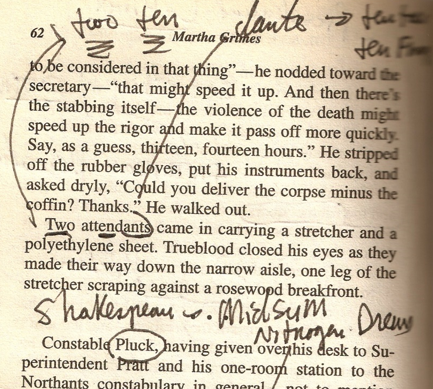 two ten dante → ten
62 Martha Grimes ten
to be considered in that thing"—he nodded toward the
secretary—"that might speed it up. And then there's
the stabbing itself—the violence of the death might
speed up the rigor and make it pass off more quickly.
Say, as a guess, thirteen, fourteen hours." He stripped
off the rubber gloves, put his instruments back, and
asked dryly, "Could you deliver the corpse minus the
coffin? Thanks." He walked out.
Two attendants came in carrying a stretcher and a
polyethylene sheet. Trueblood closed his eyes as they
made their way down the narrow aisle, one leg of the
stretcher scraping against a rosewood breakfront.
Shakespeare MidSum
Nitrogen Dream
Constable Pluck, having given over his desk to Su-
perintendent Pratt and his one-room station to the
Northants constabulary in general, not to mention